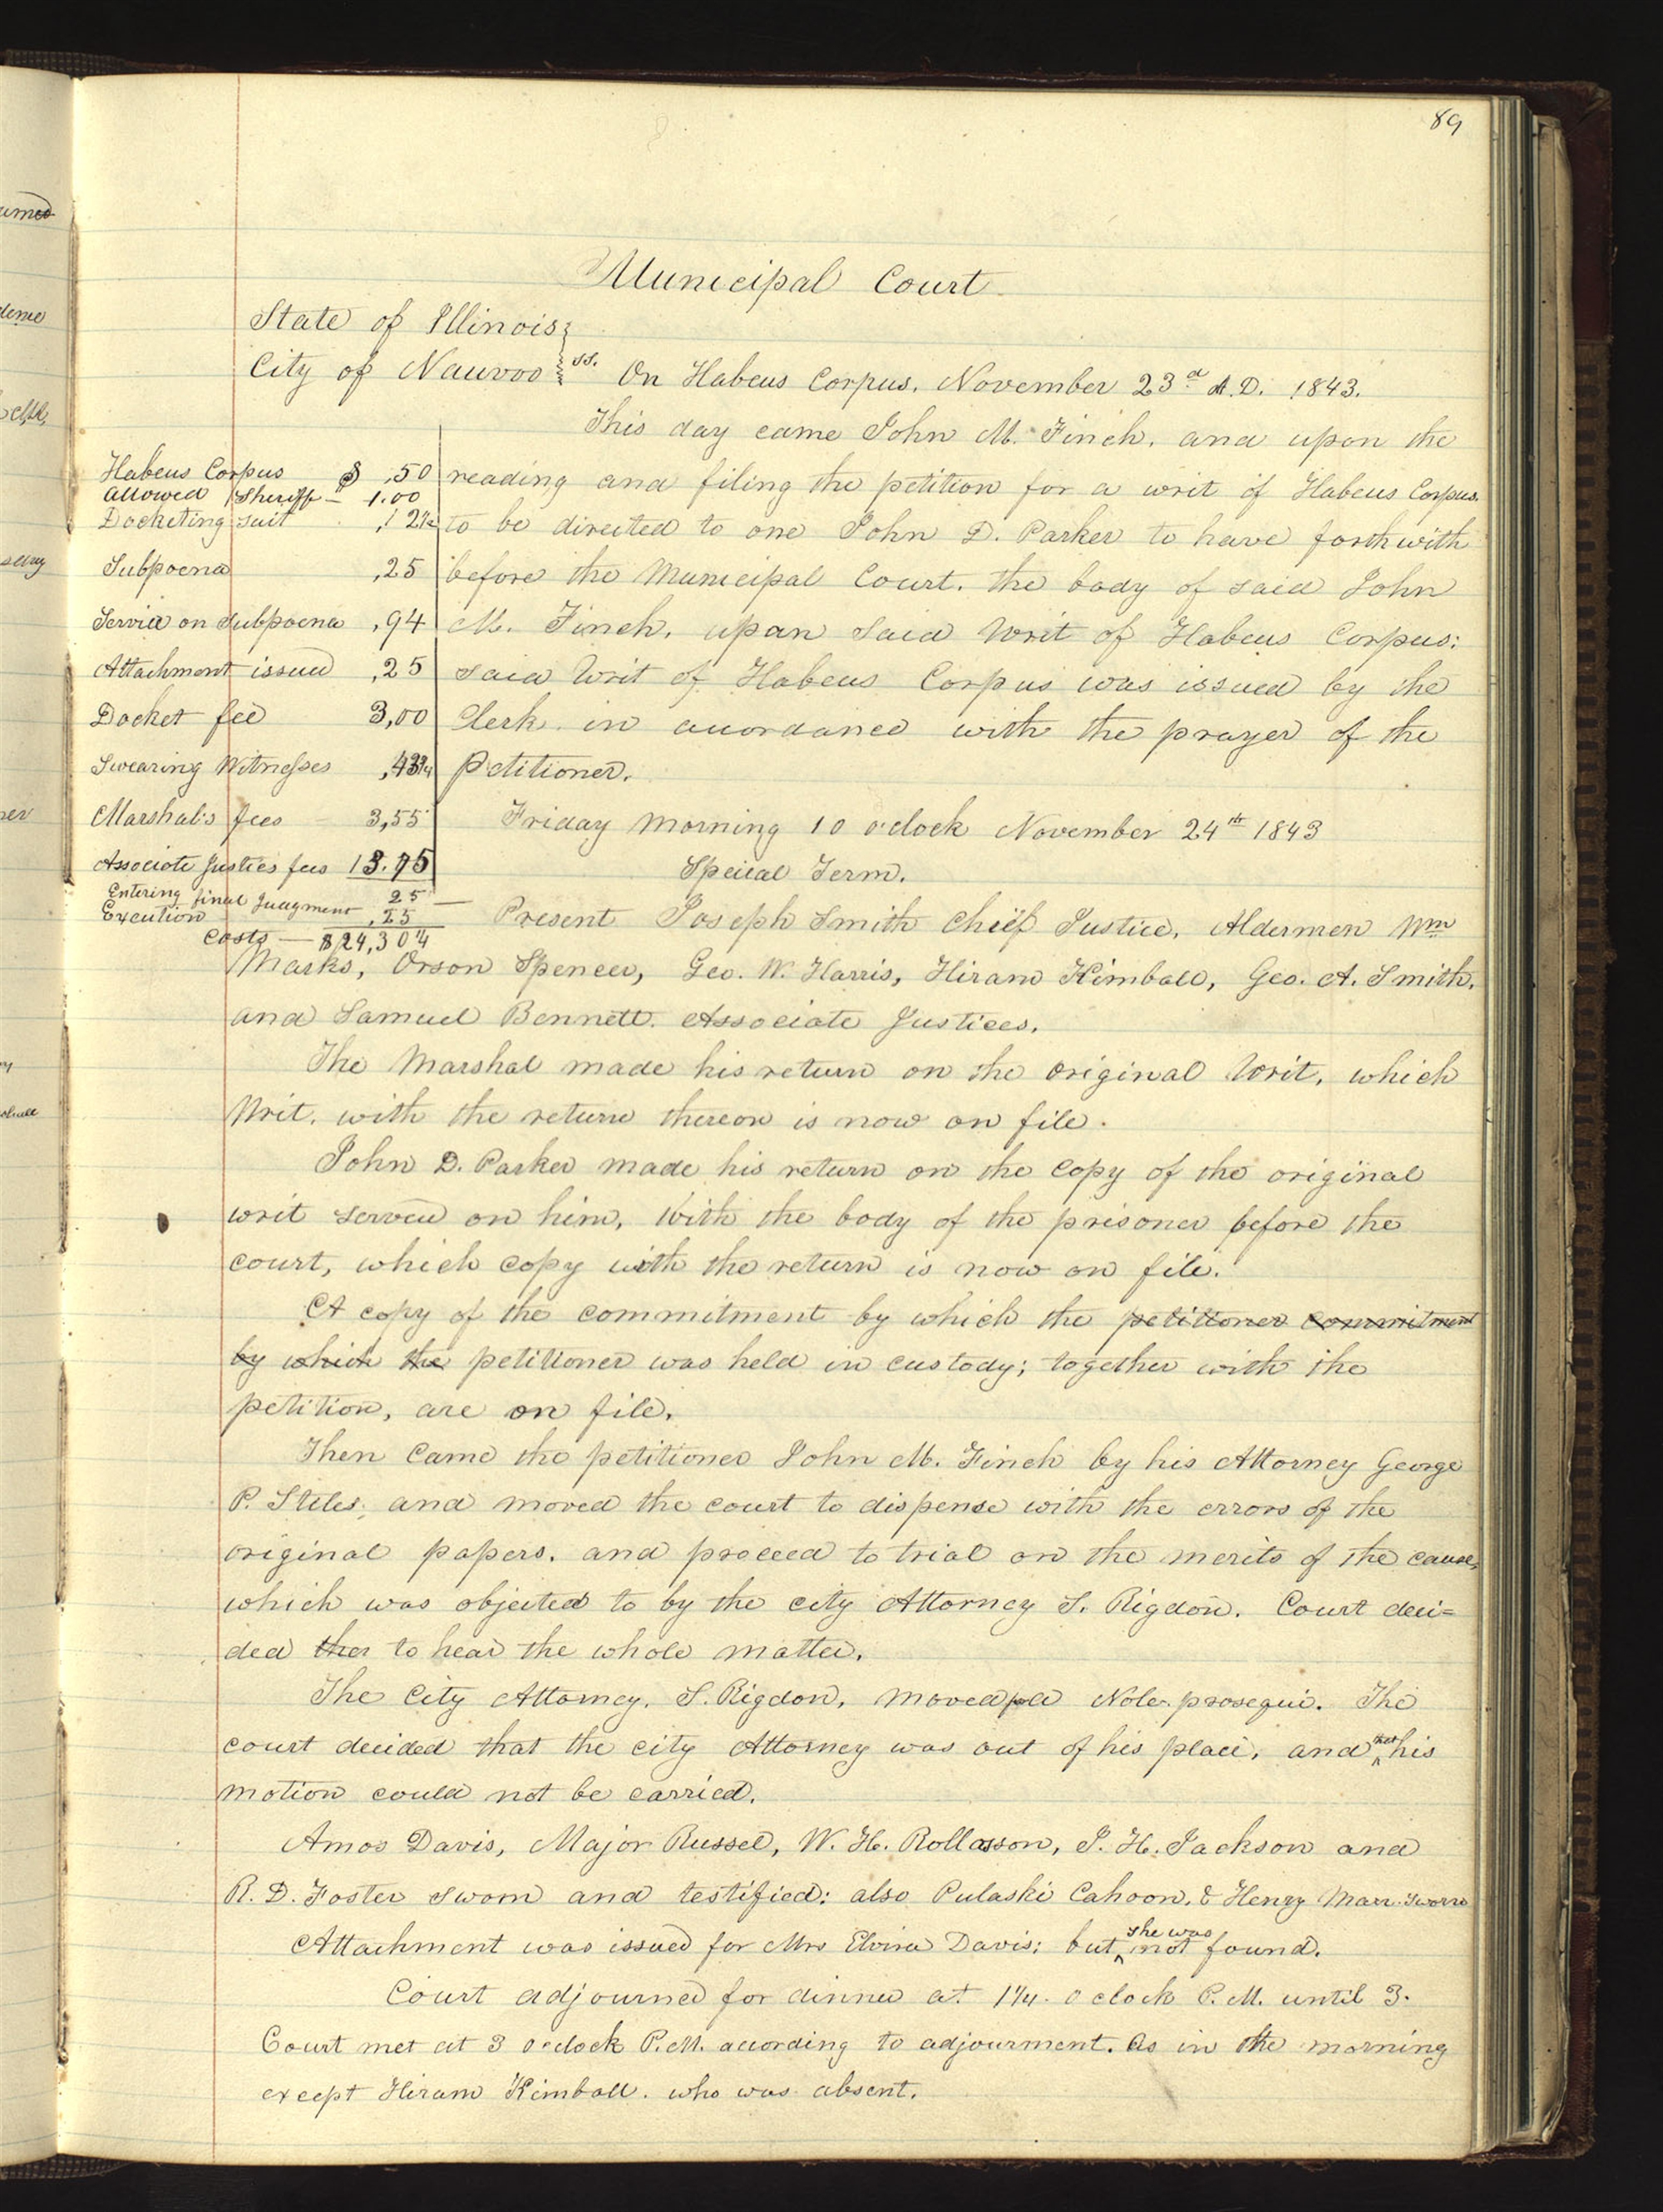 89
Municipal Court
State of Illinois
City of Nauvoo ss. On Habeus Corpus. November 23d A.D. 1843.
This day came John M. Finch, and upon the
reading and filing the petition for a writ of Habeus Corpus.
to be directed to one John D. Parker to have forthwith
before the Municipal Court. the body of said John
M. Finch, upon said Writ of Habeus Corpus:
said Writ of Habeus Corpus was issued by the
Clerk in accordance with the prayer of the
Petitioner.
Habeus Corpus $ ,50
allowed Sheriff " 1.00
Docketing suit ,12½
Subpoena ,25
Service on Subpoena ,94
Attachment issued ,25
Docket fee 3,00
Swearing Witnesses ,43¾
Marshal's fees 3,55
Associate Justices fees 13.75
Entering final Judgment 25
Execution ,25
Costs — $24,30¼
Friday Morning 10 o'clock November 24th 1843
Special Term.
Present Joseph Smith Chief Justice, Aldermen Wm
Marks, Orson Spencer, Geo. W. Harris, Hiram Kimball, Geo. A. Smith,
and Samuel Bennett. Associate Justices.
The Marshal made his return on the original Writ, which
Writ, with the return thereon is now on file.
John D. Parker made his return on the Copy of the original
writ served on him, With the body of the prisoner before the
court, which copy with the return is now on file.
A copy of the commitment by which the petitioner commitment
by which the petitioner was held in custody; together with the
petition, are on file.
Then Came the petitioner John M. Finch by his Attorney George
P. Stiles, and moved the court to dispense with the errors of the
original papers, and proceed to trial on the merits of the cause,
which was objected to by the city Attorney S. Rigdon. Court deci=
ded ther to hear the whole matter.
The City Attorney, S. Rigdon, moved a Nole. prosequi. The
court decided that the city Attorney was out of his place, and that his
motion could not be carried.
Amos Davis, Major Russel, W. H. Rollosson, J. H. Jackson and
R. D. Foster sworn and testified: also Pulaski Cahoon, & Henry Marr sworn
Attachment was issued for Mrs Elvira Davis; but she was not found.
Court adjourned for dinner at 1¼ o clock P. M. until 3.
Court met at 3 o'clock P.M. according to adjourment. As in the morning
except Hiram Kimball. who was absent.